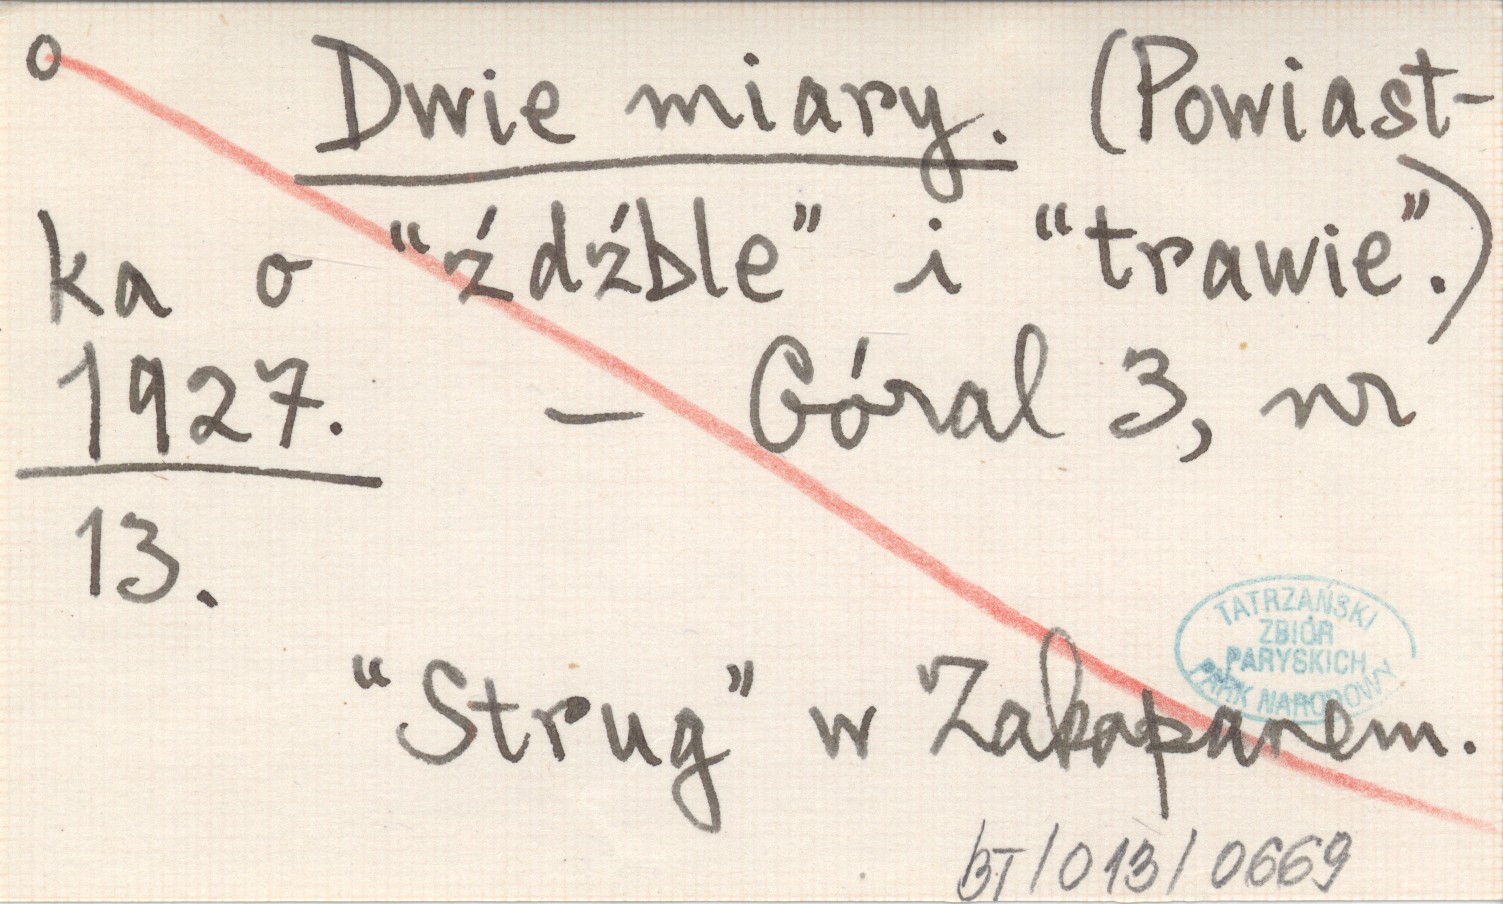 o Dwie miary. (Powiast-
ka o “źdźble” i “trawie”.)
1927. — Góral 3, nr
13.
TATRZAŃSKI
ZBIÓR
PARYSKICH
PARK NARODOWY
“Strug” w Zakopanem.
BT/013/0669